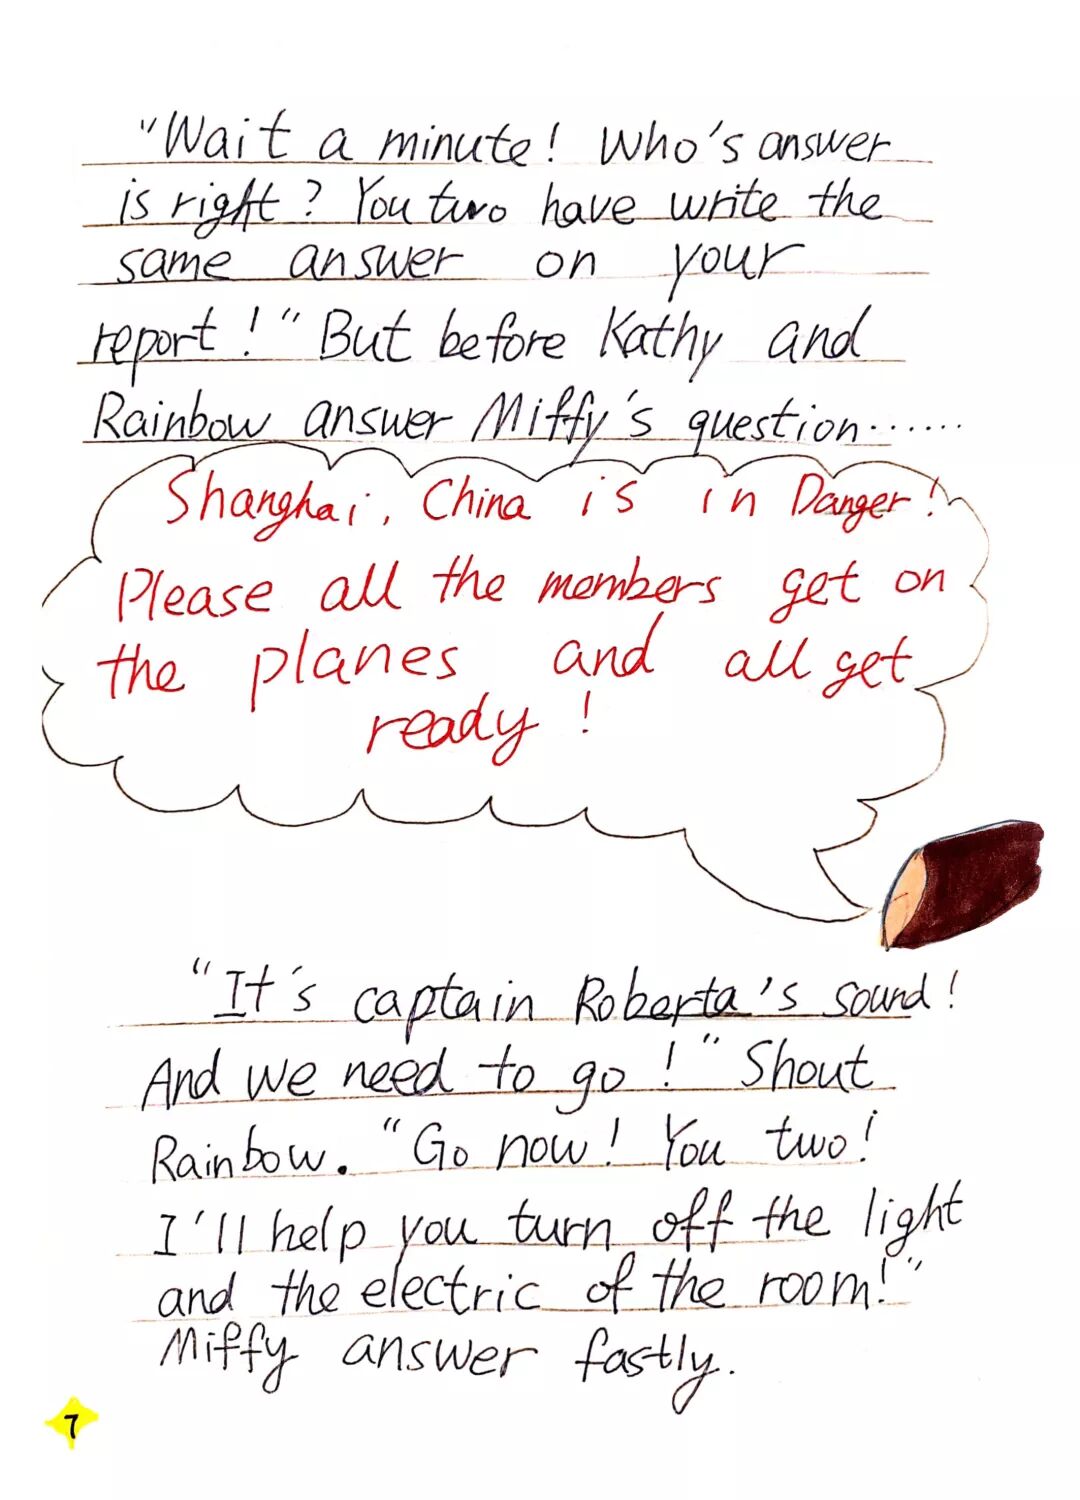 "Wait a minute! Who's answer
is right? You two have write the
same answer on your
report!" But before Kathy and
Rainbow answer Miffy's question......
Shanghai, China is in Danger!
Please all the members get on
the planes and all get
ready!
"It's captain Roberta's sound!
And we need to go!" Shout
Rainbow. "Go now! You two!
I'll help you turn off the light
and the electric of the room!"
Miffy answer fastly.
7